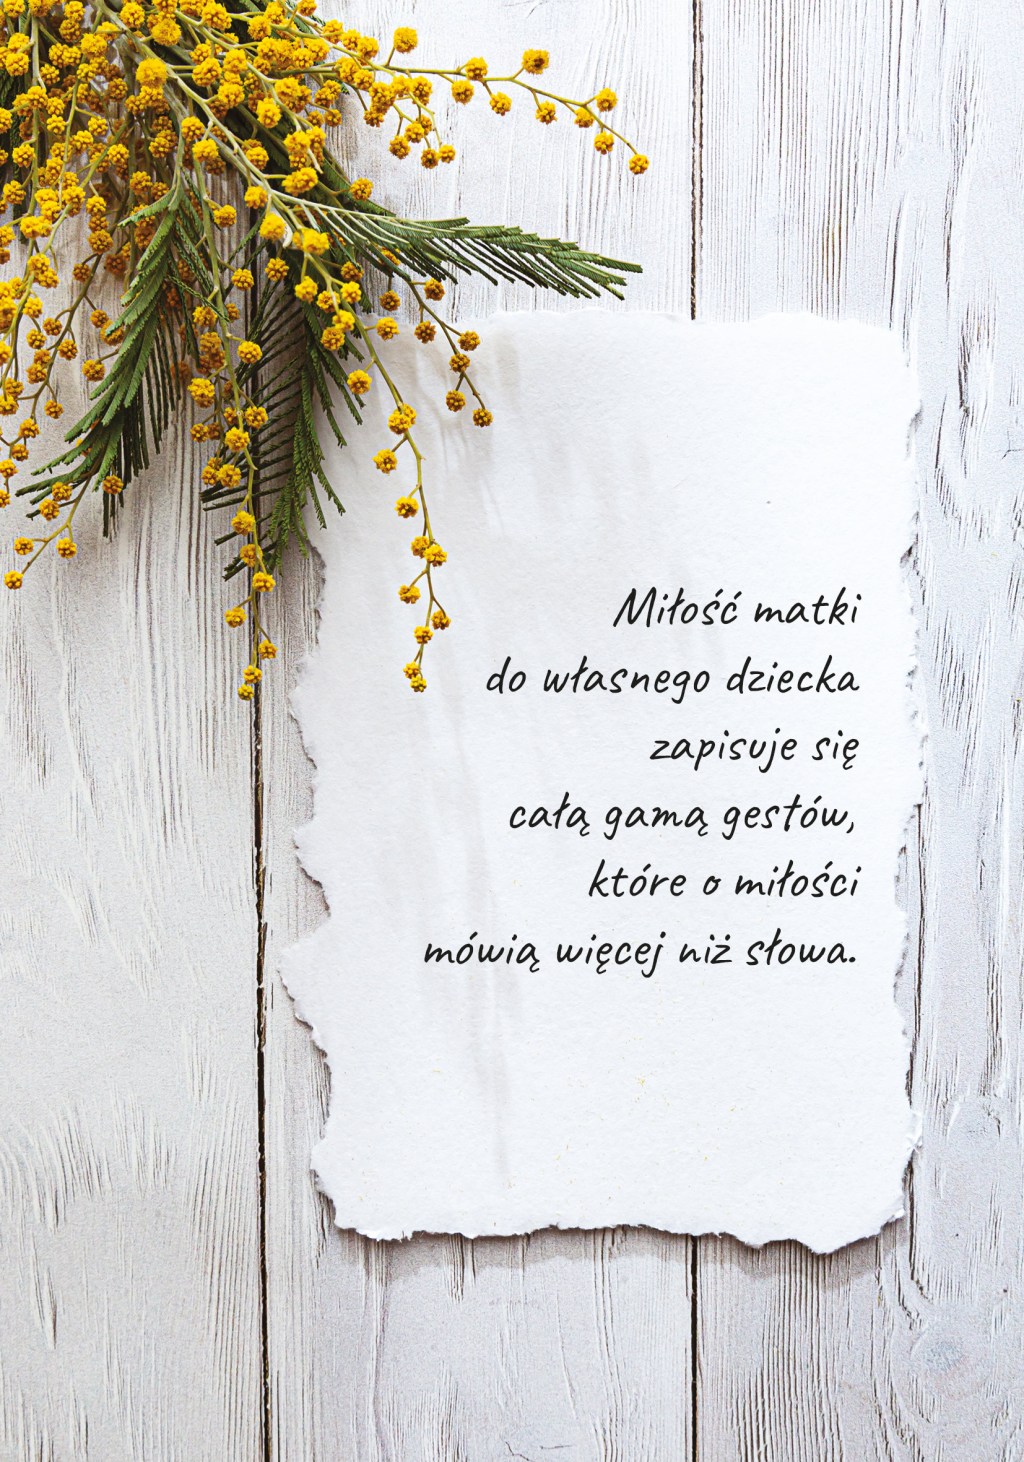 Miłość matki
do własnego dziecka
zapisuje się
całą gamą gestów,
które o miłości
mówią więcej niż słowa.